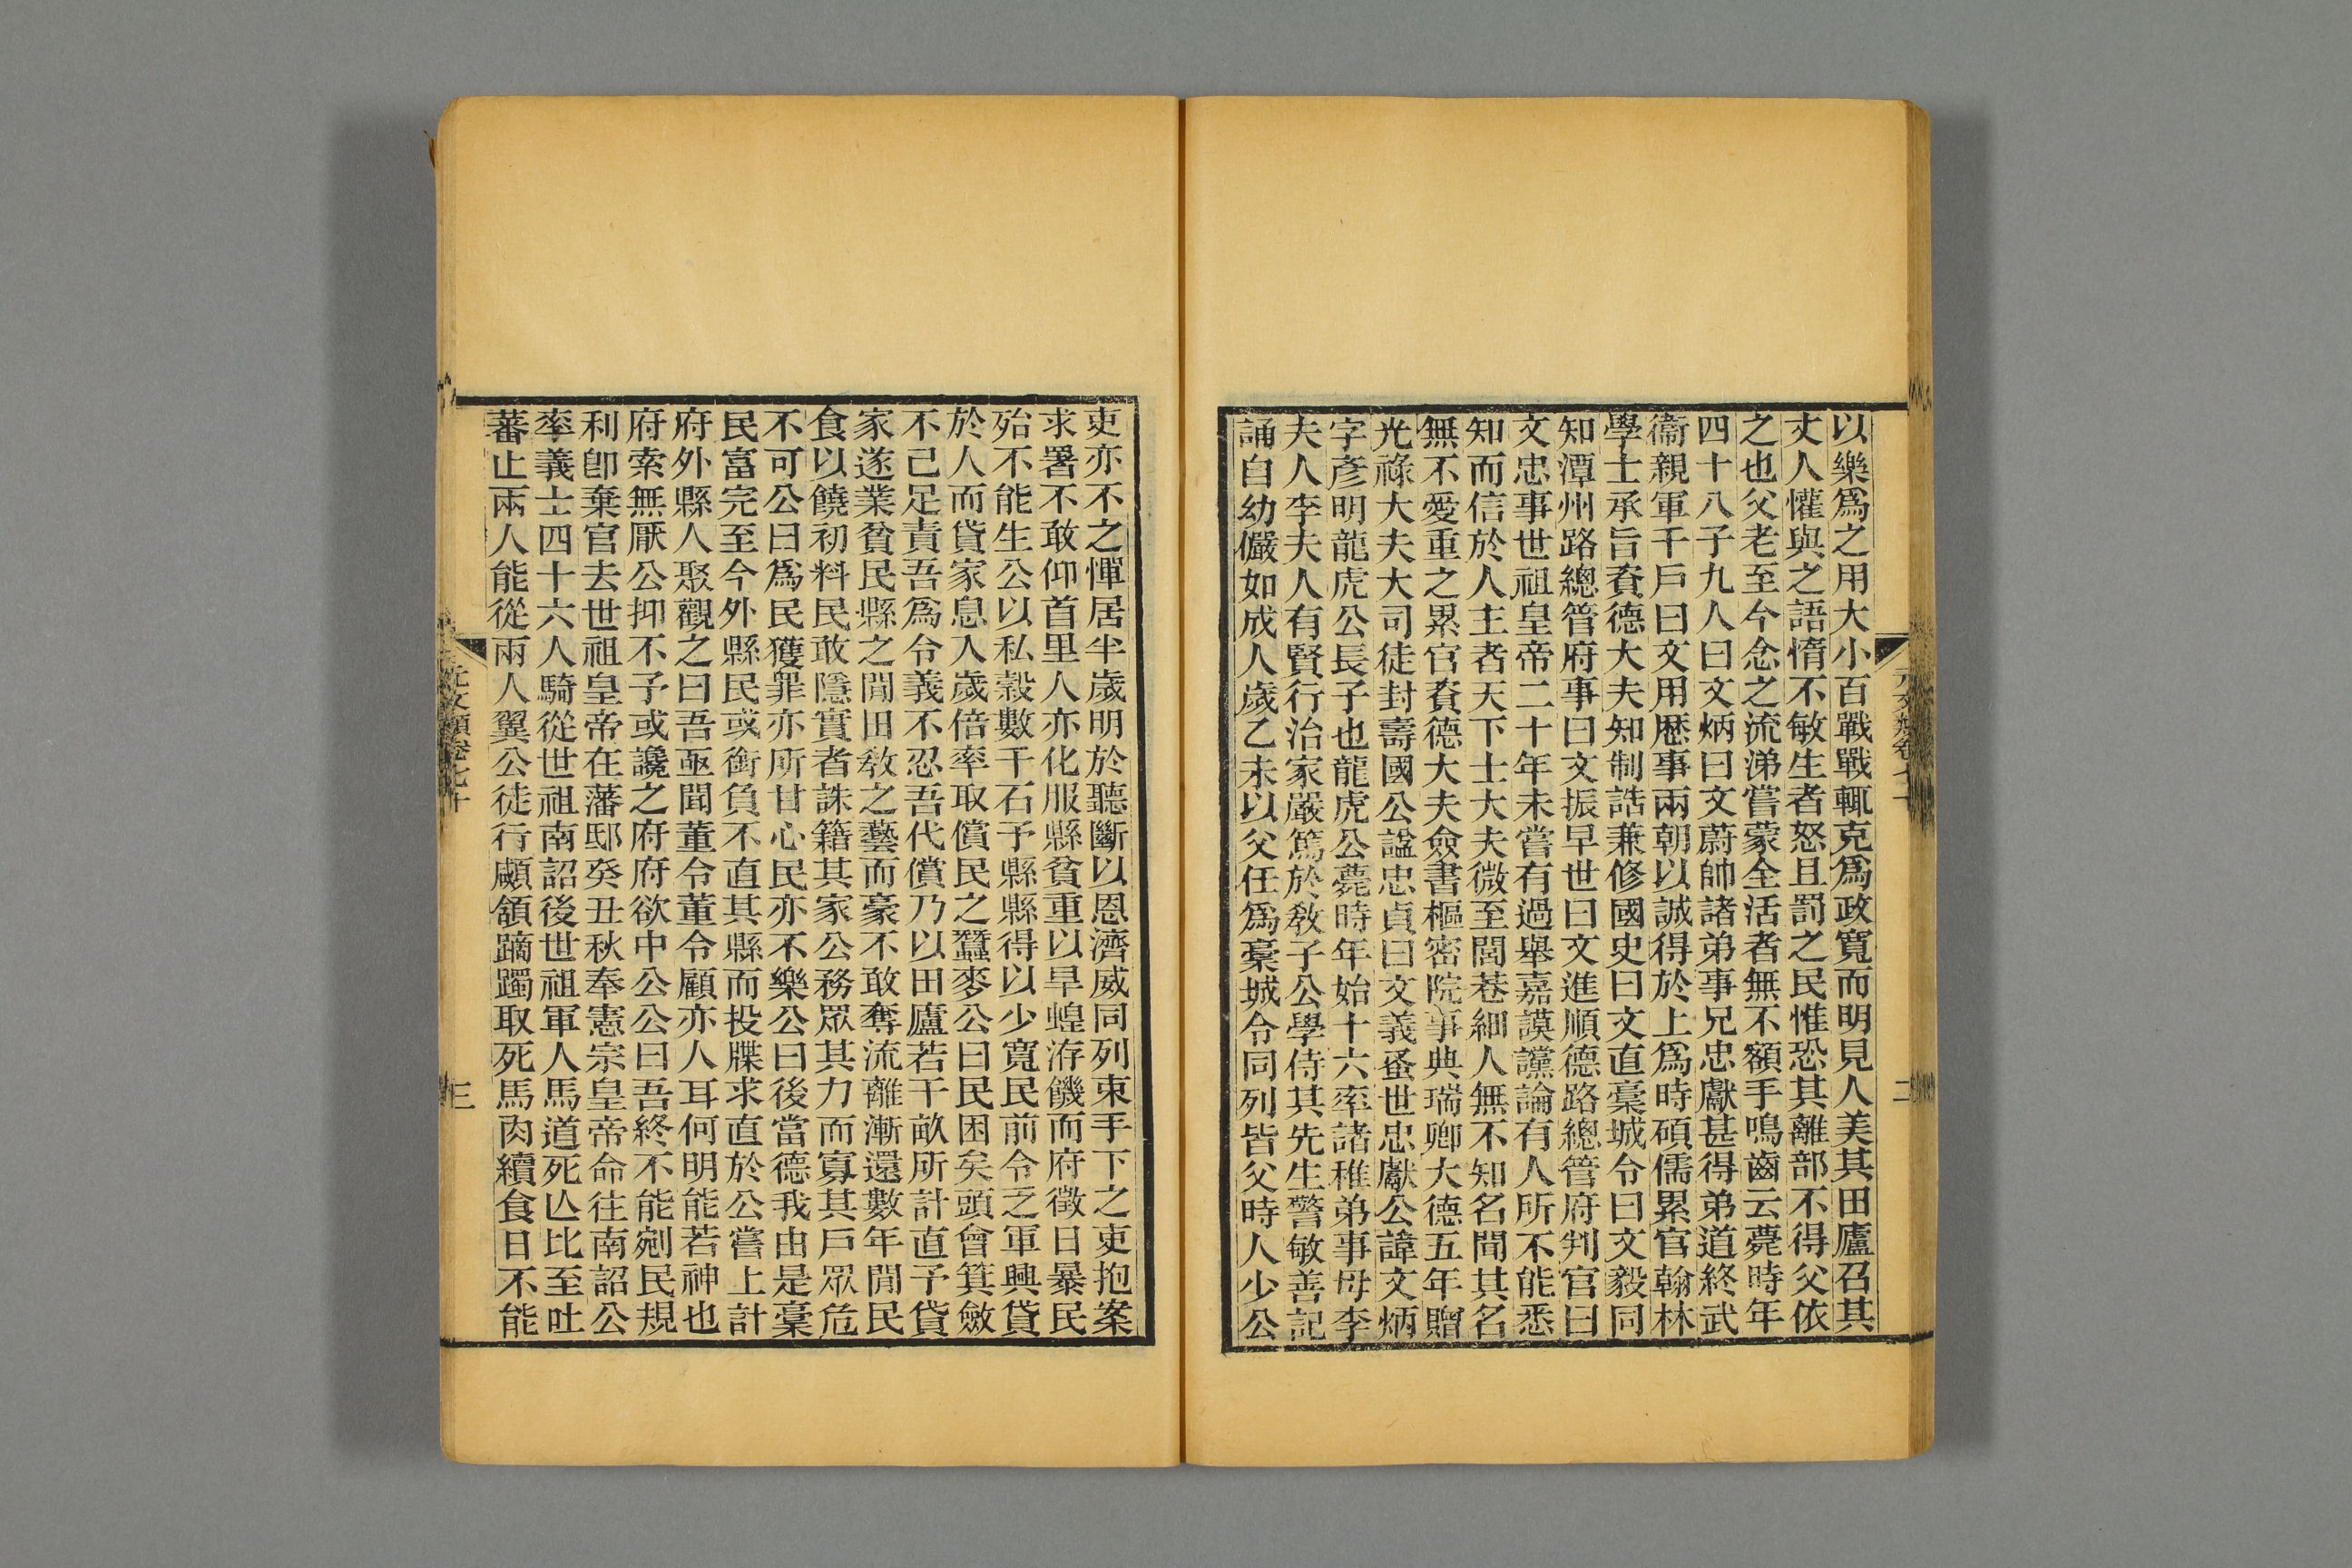 以樂爲之用大小百戰戰輒克爲政寬而明見人美其田廬召其
丈人懽與之語惰不敏生者怒且罰之民惟恐其離部不得父依
之也父老至今念之流涕嘗蒙全活者無不額手鳴齒云薨時年
四十八子九人曰文炳曰文蔚帥諸弟事兄忠獻甚得弟道終武
衞親軍千戶曰文用歷事兩朝以誠得於上爲時碩儒累官翰林
學士承旨資德大夫知制誥兼修國史曰文直藁城令曰文毅同
知潭州路總管府事曰文振早世曰文進順德路總管府判官曰
文忠事世祖皇帝二十年未嘗有過舉嘉謨讜論有人所不能悉
知而信於人主者天下士大夫微至閭巷細人無不知名間其名
無不愛重之累官資德大夫僉書樞密院事典瑞卿大德五年贈
光祿大夫大司徒封壽國公諡忠貞曰文義蚤世忠獻公諱文炳
字彥明龍虎公長子也龍虎公薨時年始十六率諸稚弟事母李
夫人李夫人有賢行治家嚴篤於敎子公學侍其先生警敏善記
誦自幼儼如成人歲乙未以父任爲藁城令同列皆父時人少公
吏亦不之憚居半歲明於聽斷以恩濟威同列束手下之吏抱案
求署不敢仰首里人亦化服縣貧重以旱蝗洊饑而府徵日暴民
殆不能生公以私穀數千石予縣縣得以少寬民前令乏軍興貸
於人而貸家息入歲倍率取償民之蠶麥公曰民困矣頭會箕斂
不己足責吾爲令義不忍吾代償乃以田廬若干畝所計直予貸
家遂業貧民縣之閒田敎之藝而豪不敢奪流離漸還數年閒民
食以饒初料民敢隱實者誅籍其家公務眾其力而寡其戶眾危
不可公曰爲民獲罪亦所甘心民亦不樂公曰後當德我由是藁
民富完至今外縣民或銜負不直其縣而投牒求直於公嘗上計
府外縣人聚觀之曰吾亟聞董令董令顧亦人耳何明能若神也
府索無厭公抑不予或讒之府府欲中公公曰吾終不能剜民規
利卽棄官去世祖皇帝在藩邸癸丑秋奉憲宗皇帝命往南詔公
率義士四十六人騎從世祖南詔後世祖軍人馬道死亾比至吐
蕃止兩人能從兩人翼公徒行顣頷蹢躅取死馬肉續食日不能
元文類卷七十
二
元文類卷七十
三